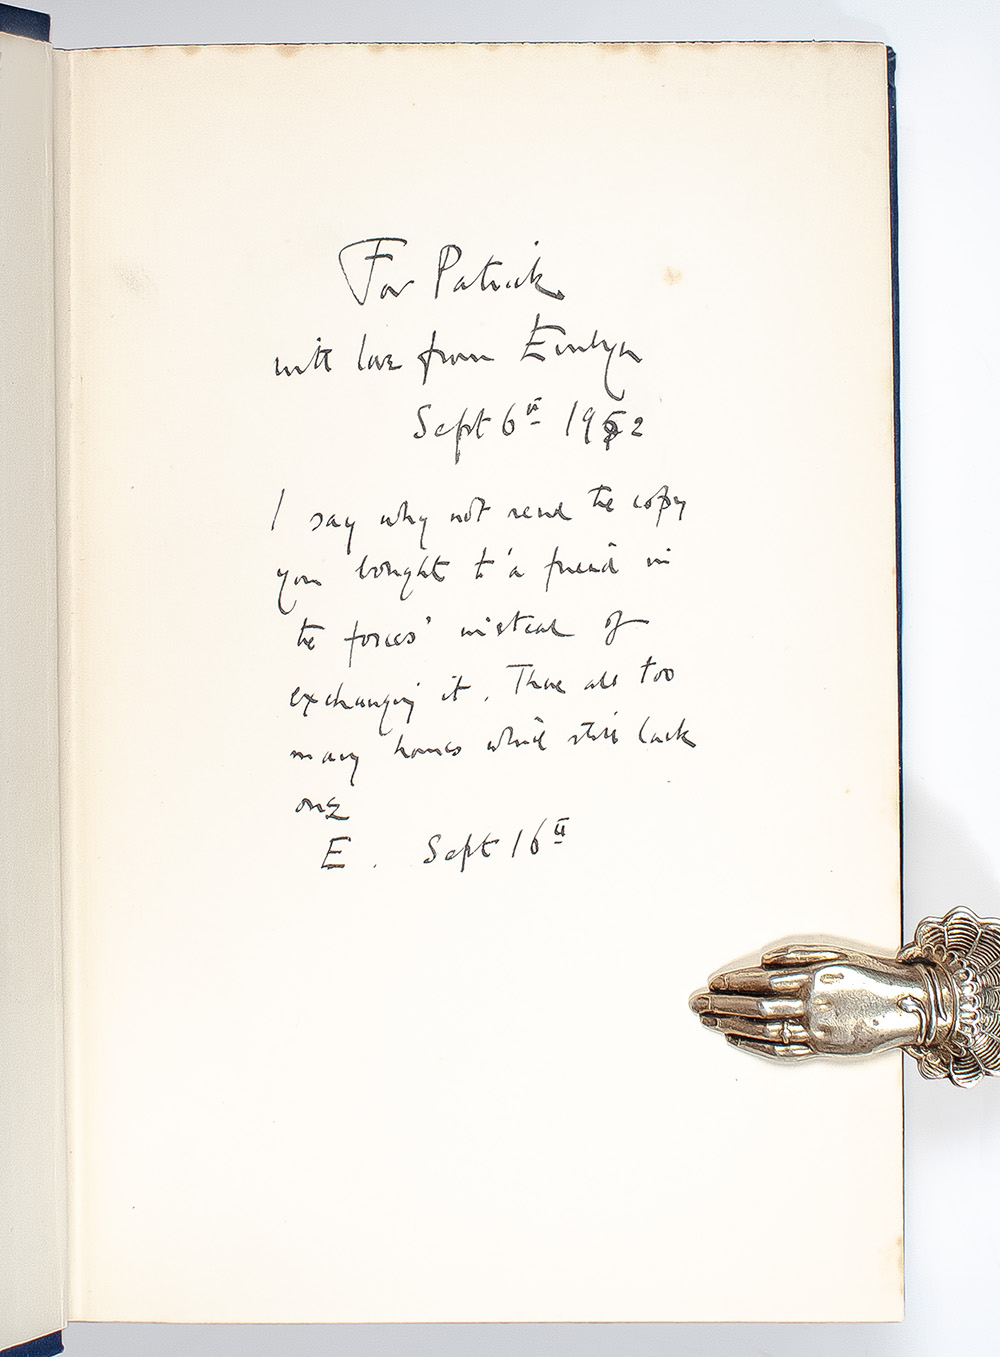 For Patrick
with love from Evelyn
Sept 6th 1952
I say why not send the copy
you bought to 'a friend in
the forces' instead of
exchanging it. There are too
many homes which still lack
one
E. Sept 16th